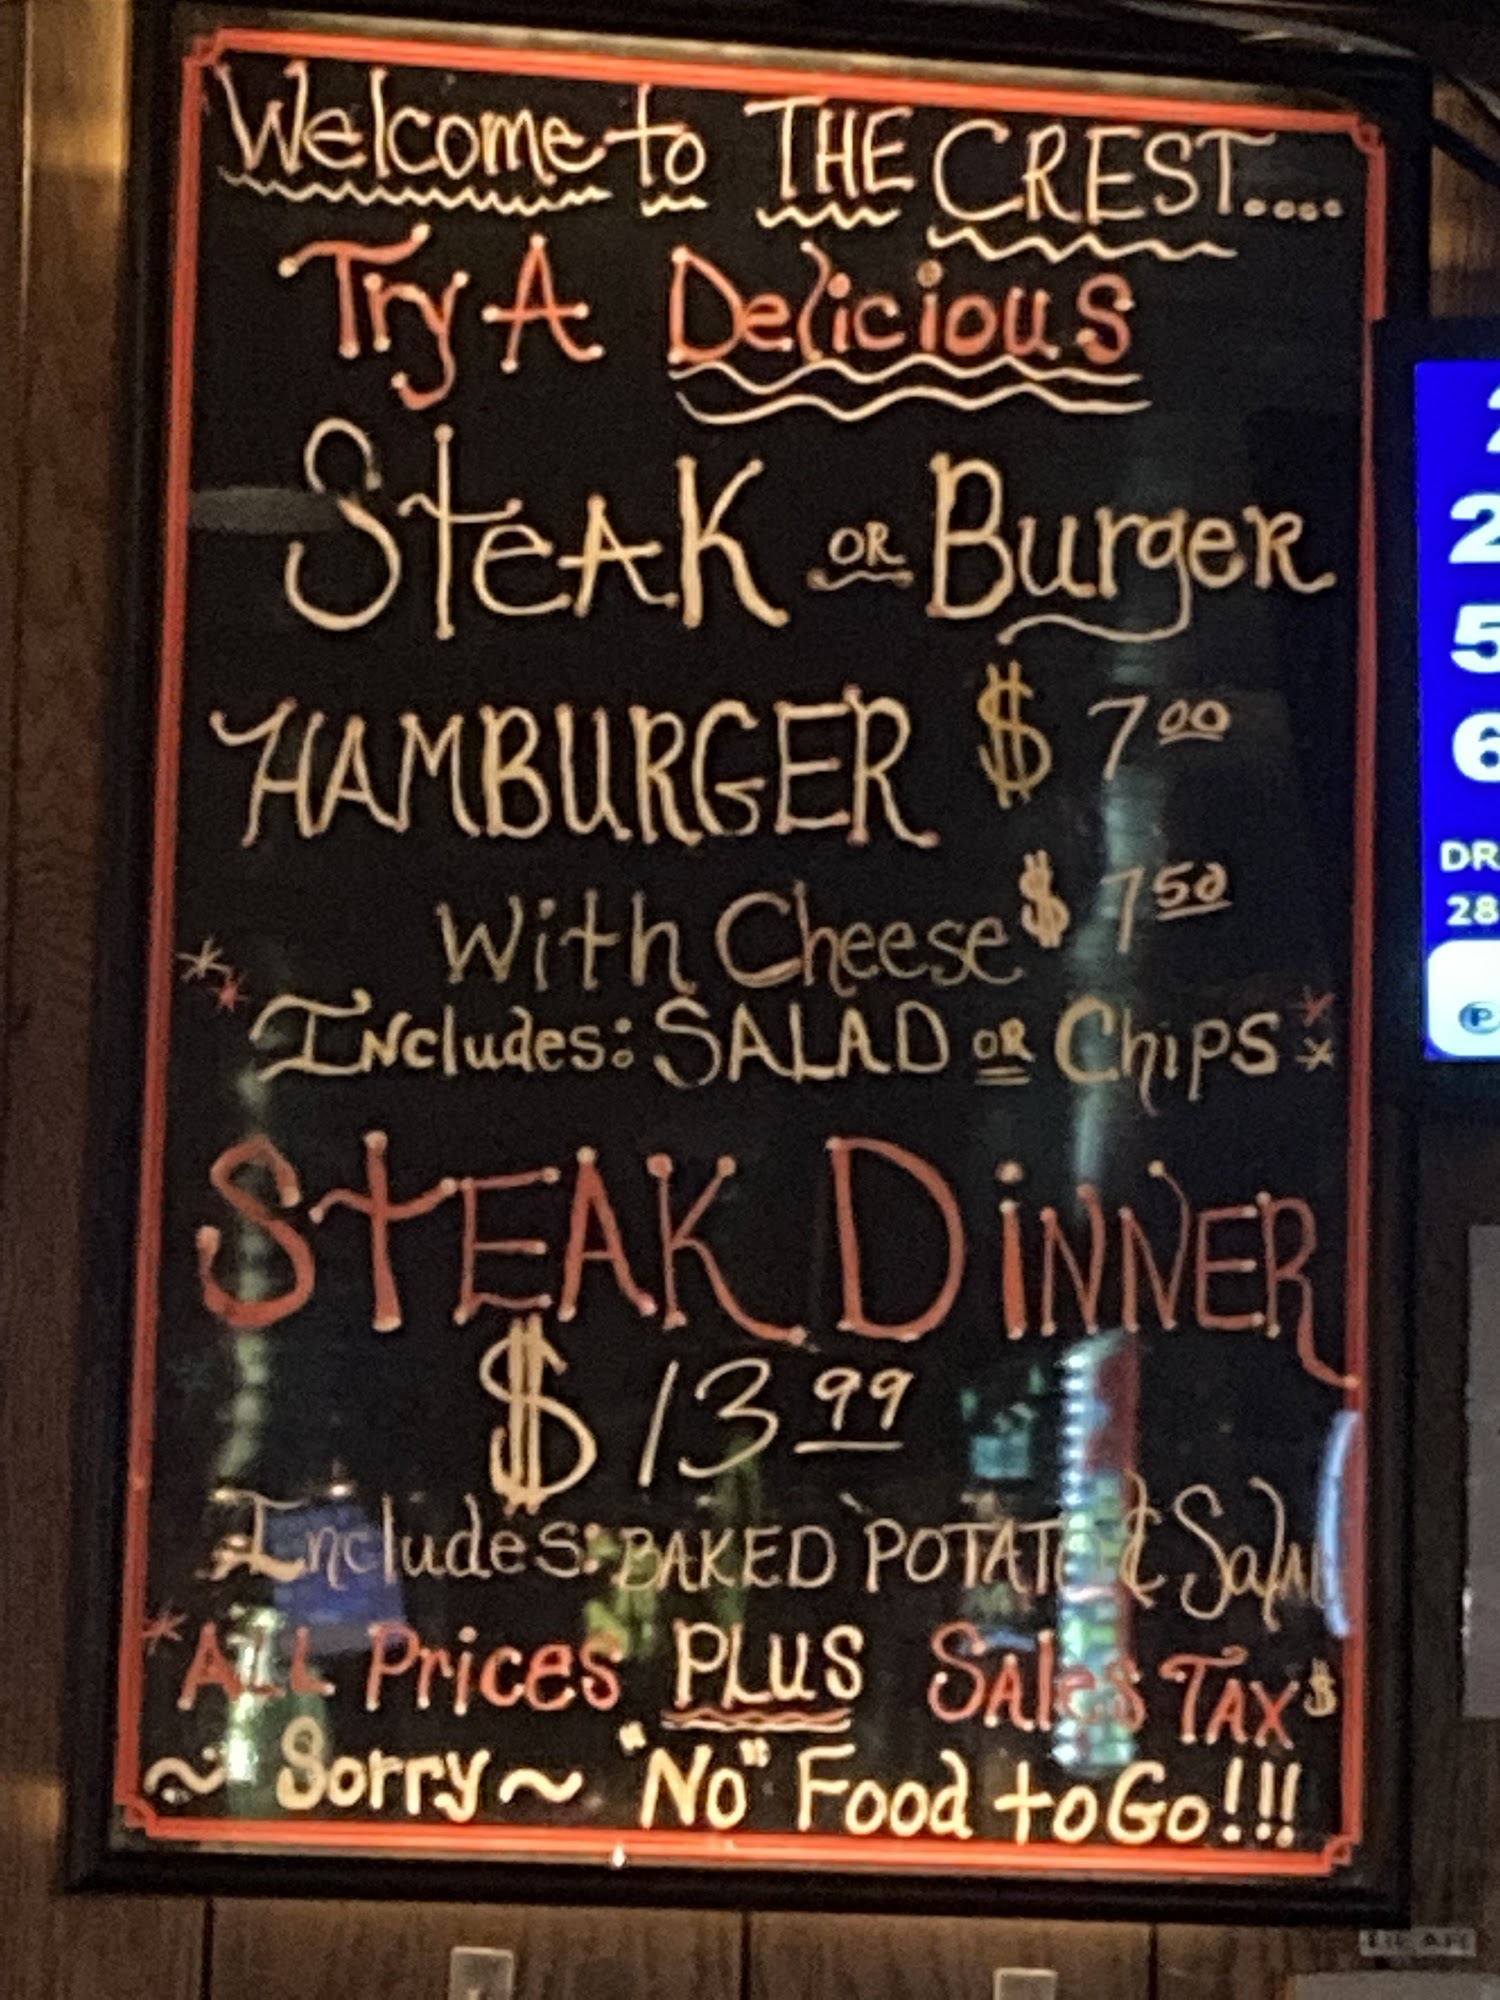 Welcome to THE CREST....
Try A Delicious
SteAK OR BurgeR
HAMBURGER $ 7 00
With Cheese $ 7 50
** INcludes: SALAD OR ChiPS **
STEAK DiNNER
$ 13 99
Includes: BAKED POTATO & Salad
*ALL Prices PLuS SAleS TAX $
~ Sorry ~ "No" Food to Go!!!
2
5
6
DR
28
P